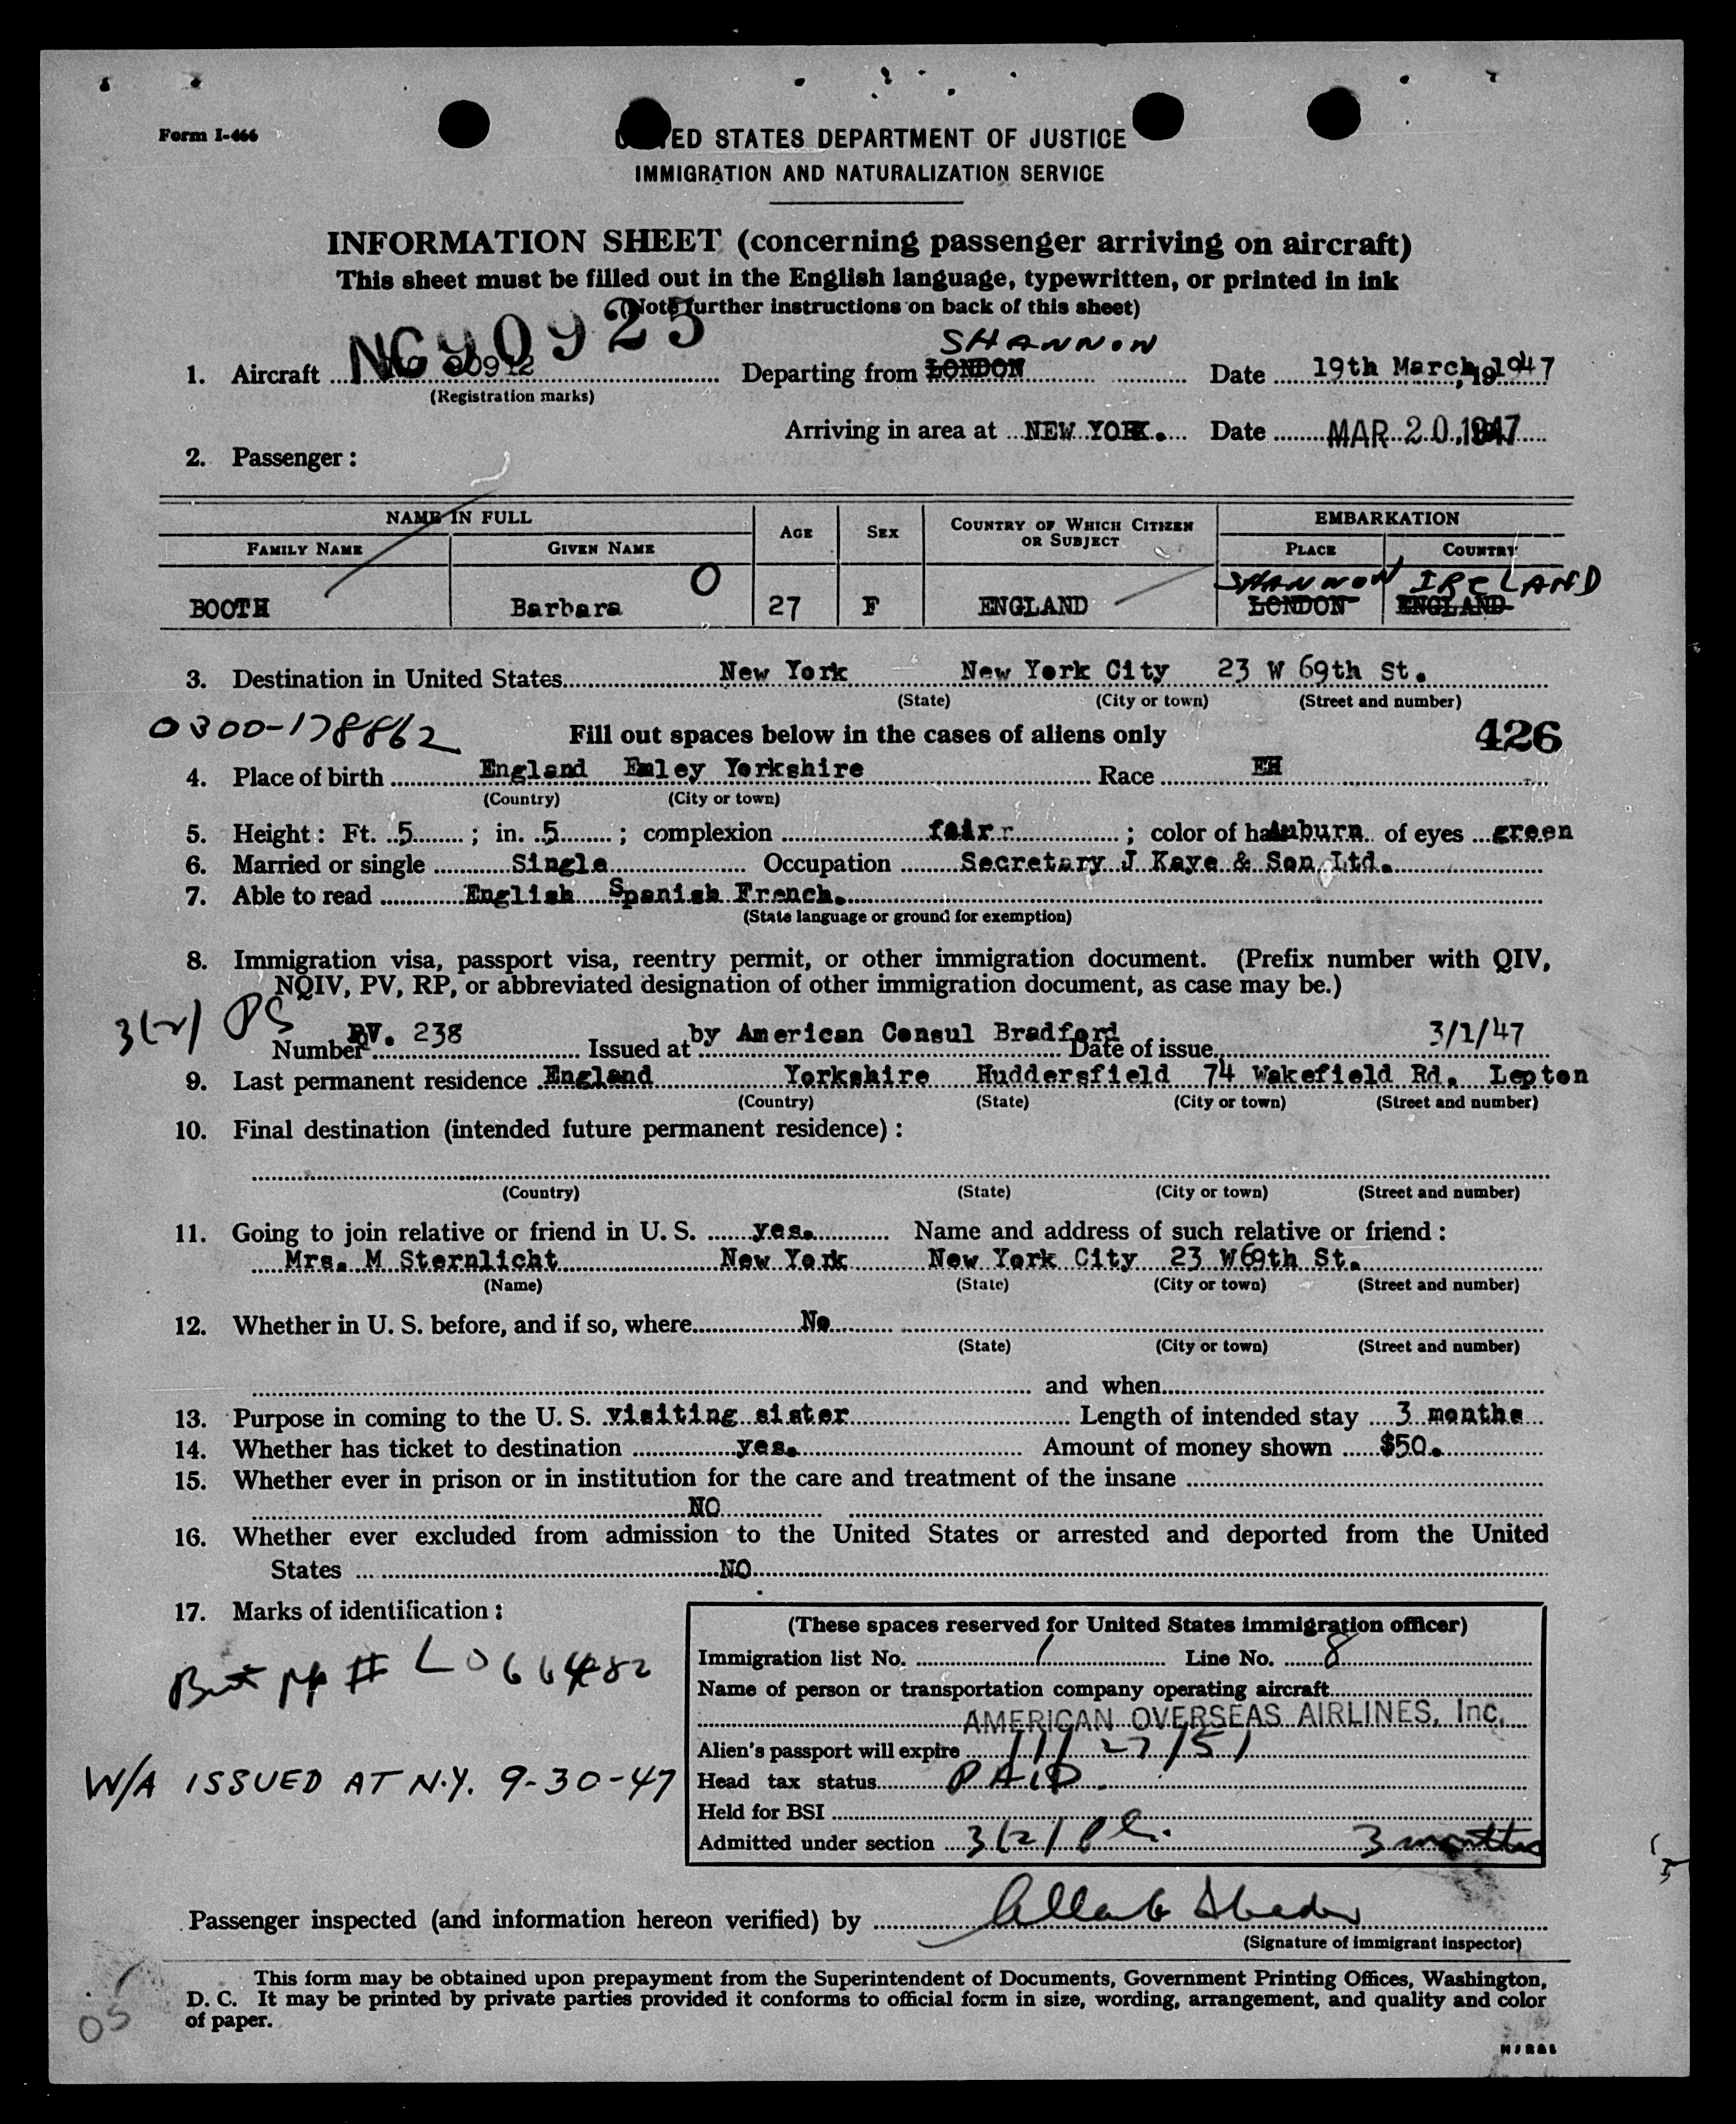 Form I-466
UNITED STATES DEPARTMENT OF JUSTICE
IMMIGRATION AND NATURALIZATION SERVICE
INFORMATION SHEET (concerning passenger arriving on aircraft)
This sheet must be filled out in the English language, typewritten, or printed in ink
(Note further instructions on back of this sheet)
SHANNON
1. Aircraft NC90925 90912 Departing from LONDON Date 19th March, 1947
(Registration marks)
Arriving in area at NEW YORK. Date MAR 20 1947
2. Passenger:
NAME IN FULL AGE SEX COUNTRY OF WHICH CITIZEN OR SUBJECT EMBARKATION
FAMILY NAME GIVEN NAME PLACE COUNTRY
O SHANNON IRELAND
BOOTH Barbara 27 F ENGLAND LONDON ENGLAND
3. Destination in United States New York New York City 23 W 69th St.
(State) (City or town) (Street and number)
0300-178862 Fill out spaces below in the cases of aliens only 426
4. Place of birth England Emley Yorkshire Race EH
(Country) (City or town)
5. Height: Ft. 5; in. 5; complexion fair; color of hair Auburn of eyes green
6. Married or single Single Occupation Secretary J Kaye & Son Ltd.
7. Able to read English Spanish French.
(State language or ground for exemption)
8. Immigration visa, passport visa, reentry permit, or other immigration document. (Prefix number with QIV,
NQIV, PV, RP, or abbreviated designation of other immigration document, as case may be.)
3(2)
Number PV. 238 Issued at by American Consul Bradford Date of issue 3/1/47
9. Last permanent residence England Yorkshire Huddersfield 74 Wakefield Rd. Lepton
(Country) (State) (City or town) (Street and number)
10. Final destination (intended future permanent residence):
(Country) (State) (City or town) (Street and number)
11. Going to join relative or friend in U. S. yes. Name and address of such relative or friend:
Mrs. M Sternlicht New York New York City 23 W69th St.
(Name) (State) (City or town) (Street and number)
12. Whether in U. S. before, and if so, where No
(State) (City or town) (Street and number)
and when
13. Purpose in coming to the U. S. visiting sister Length of intended stay 3 months
14. Whether has ticket to destination yes. Amount of money shown $50.
15. Whether ever in prison or in institution for the care and treatment of the insane
NO
16. Whether ever excluded from admission to the United States or arrested and deported from the United
States NO
17. Marks of identification:
Brit pp # L066482
W/A ISSUED AT N.Y. 9-30-47
(These spaces reserved for United States immigration officer)
Immigration list No. 1 Line No. 8
Name of person or transportation company operating aircraft
AMERICAN OVERSEAS AIRLINES, Inc.
Alien's passport will expire 11/27/51
Head tax status PAID.
Held for BSI
Admitted under section 3(2) 3 months
Passenger inspected (and information hereon verified) by
(Signature of immigrant inspector)
This form may be obtained upon prepayment from the Superintendent of Documents, Government Printing Offices, Washington,
D. C. It may be printed by private parties provided it conforms to official form in size, wording, arrangement, and quality and color
of paper.